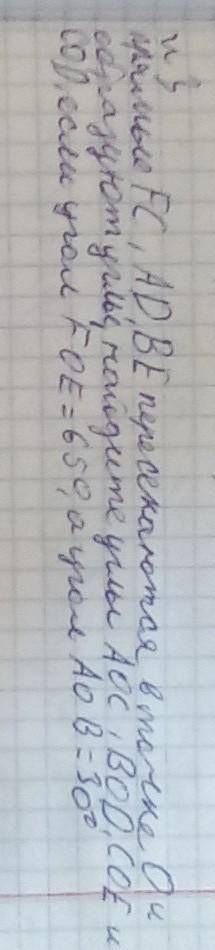 н 3
прямые FC, AD, BE пересекаются в точке O и
образуют углы, найдите углы AOC, BOD, COE и
COD, если угол FOE = 65°, а угол AOB = 30°